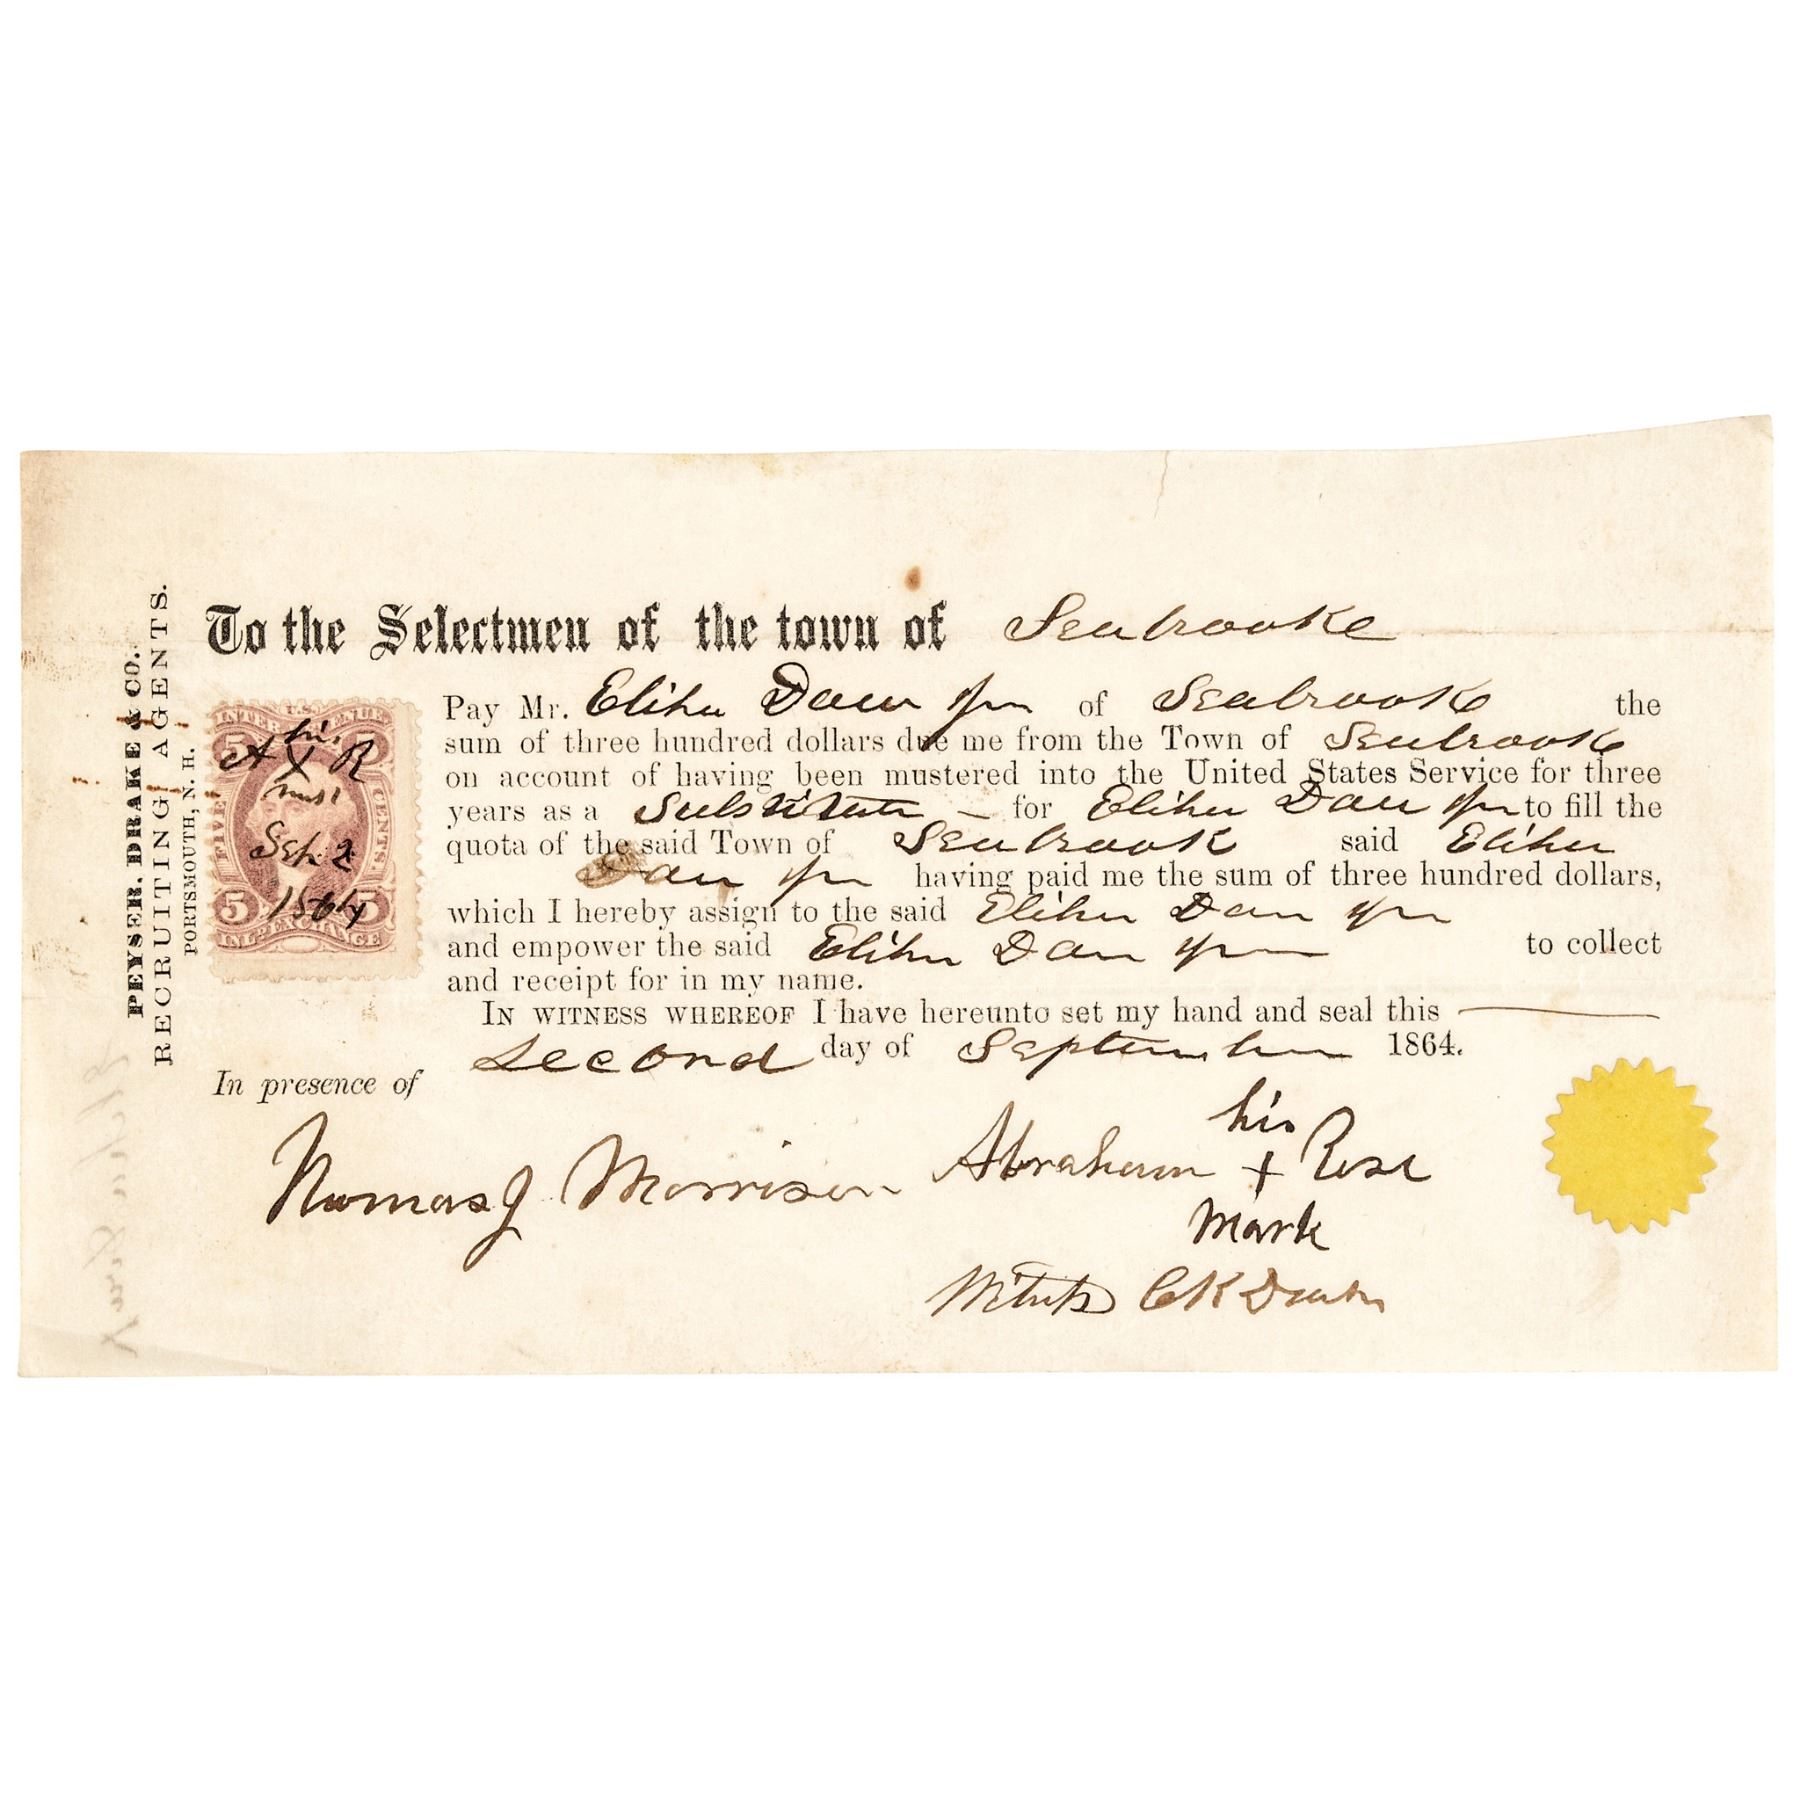 PEYSER, DRAKE & CO.
RECRUITING AGENTS.
PORTSMOUTH, N. H.
To the Selectmen of the town of Seabrooke
Pay Mr. Elihu Dow Jun of Seabrook the
sum of three hundred dollars due me from the Town of Seabrook
on account of having been mustered into the United States Service for three
years as a Substitute – for Elihu Dow Jun to fill the
quota of the said Town of Seabrook said Elihu
Dow Jun having paid me the sum of three hundred dollars,
which I hereby assign to the said Elihu Dow Jun
and empower the said Elihu Dow Jun to collect
and receipt for in my name.
IN WITNESS WHEREOF I have hereunto set my hand and seal this
second day of September 1864.
In presence of
Thomas J Morrison
his
Abraham + Rose
Mark
Witness C K Drake
U.S.
INTER. REVENUE
5 5
FIVE CENTS.
5 5
INL'D EXCHANGE
his
A X R
Sep. 2
1864